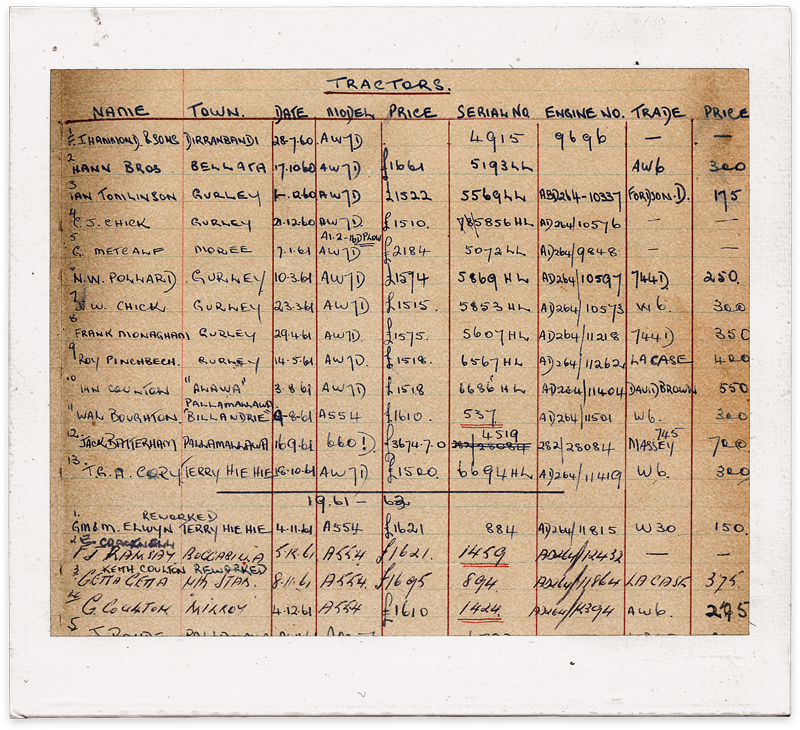 TRACTORS.
NAME TOWN. DATE MODEL PRICE SERIAL NO ENGINE NO. TRADE PRICE
1 F. J HAMMOND & SONS DIRRANBANDI 28-7-60 AW7D 4915 9696 — —
2 HANN BROS BELLATA 17.10.60 AW7D £1661 5193LL AW6 300
3 IAN TOMLINSON GURLEY 12.60 AW7D £1522 5569LL AD264-10337 FORDSON.D. 175
4 C.J. CHICK GURLEY 21.12.60 AW7D £1510. 5856HL AD264/10576 — —
A1-2-16D PLOW
5 G. METCALF MOREE 7.1.61 AW7D £2184 5072LL AD264/9848 — —
N.W. POLLARD GURLEY 10.3.61 AW7D £1574 5869HL AD264/10597 744D 250.
7 W. CHICK GURLEY 23.3.61 AW7D £1515. 5853HL AD264/10573 W6. 300
8 FRANK MONAGHAM GURLEY 29.4.61 AW7D. £1575. 5607HL AD264/11218 744D 350
9 ROY PINCHBECH. GURLEY 14.5.61 AW7D £1518. 6567HL AD264/11262 LA CASE 400
10 IAN COULTON "ANAWA" 3.8.61 AW7D £1518 6686HL AD264/11404 DAVID BROWN 550
PALLAMALLAWA.
11 WAL BOUGHTON. BILLANDRIE 9-8-61 A554 £1610. 537 AD264/11501 W6. 300
4519 745
12. JACK BATTERHAM PALLAMALLAWA 16.9.61 660D. £3674.7.0 282/28084 MASSEY 700
13. T.R.A. CORY TERRY HIE HIE 18.10.61 AW7D £1500. 6694HL AD264/11419 W6. 300
1961 – 62
REWORKED
1. GM & M. ELWYN TERRY HIE HIE 4.11.61 A554 £1621 884 AD264/11815 W30 150.
2 E. CRACKNELL
F J RAMSAY BOGGABILLA 5.12.61 A554 £1621. 1459 AD264/12432 — —
3 KEITH COULTON REWORKED
GETTA GETTA NTH STAR. 8.11.61 A554. £1695 894. AD264/11864 LA CASE 375.
4 G. COULTON MILROY 4.12.61 A554 £1610 1424. AD264/12394 AW6. 275
5